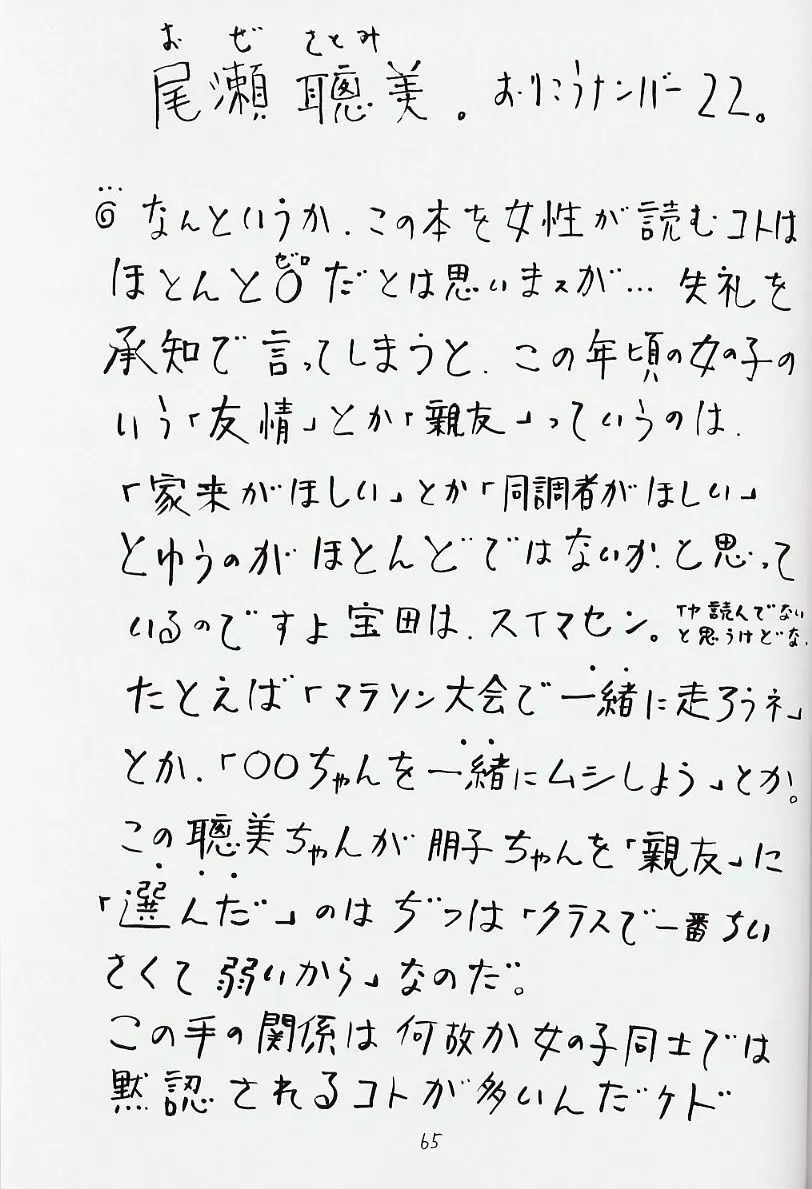 おぜ さとみ
尾瀬 聰美。おりこうナンバー22。
◎なんというか、この本を女性が読むコトは
ゼロ
ほとんど〇だとは思いまスが…失礼を
承知で言ってしまうと、この年頃の女の子の
いう「友情」とか「親友」っていうのは、
「家来がほしい」とか「同調者がほしい」
とゆうのがほとんどではないか?と思って
いるのですよ宝田は、スイマセン。 読んでない
と思うけどな、
たとえば「マラソン大会で一緒に走ろうネ」
とか、「〇〇ちゃんを一緒にムシしよう」とか。
この聰美ちゃんが朋子ちゃんを「親友」に
「選んだ」のはぢつは「クラスで一番ちい
さくて弱いから」なのだ。
この手の関係は何故か女の子同士では
黙認されるコトが多いんだケド
65